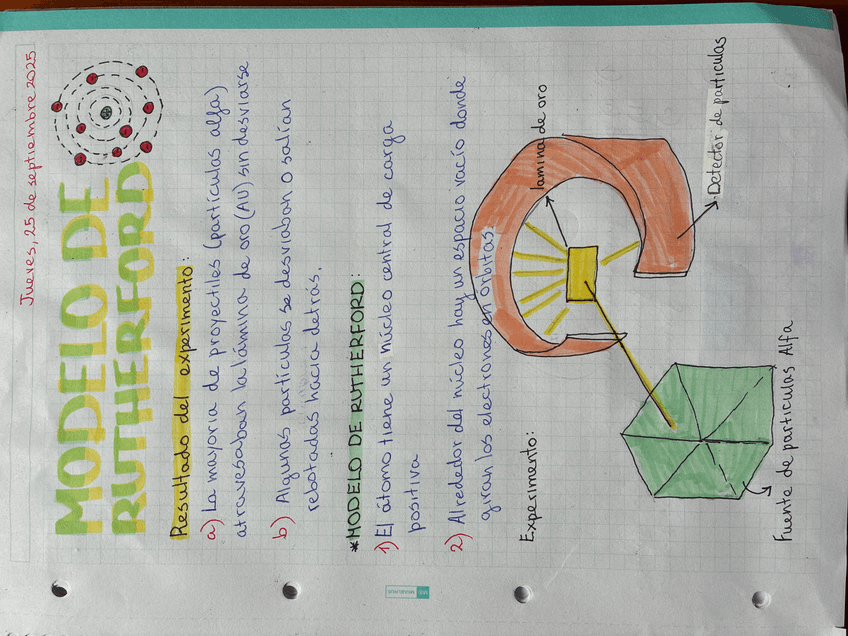 Jueves, 25 de septiembre 2025
MODELO DE
RUTHERFORD
Resultado del experimento:
a) La mayoria de proyectiles (partículas alfa)
atravesaban la lámina de oro (AU) sin desviarse
b) Algunas partículas se desviaban o salían
rebotadas hacia detrás.
*MODELO DE RUTHERFORD:
1) El átomo tiene un núcleo central de carga
positiva
2) Alrededor del núcleo hay un espacio vacío donde
giran los electrones en órbitas.
Experimento:
lamina de oro
Detector de particulas
Fuente de particulas Alfa